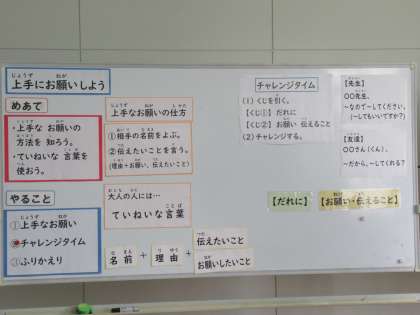 上手にお願いしよう
めあて
・上手な お願いの
方法を 知ろう。
・ていねいな 言葉を
使おう。
やること
①上手なお願い
②チャレンジタイム
③ふりかえり
上手なお願いの仕方
①相手の名前をよぶ。
②伝えたいことを言う。
(理由+お願い、伝えたいこと)
大人の人には…
ていねいな言葉
名前 + 理由 + 伝えたいこと
お願いしたいこと
チャレンジタイム
(1)くじを引く。
【くじ①】だれに
【くじ②】お願い 伝えること
(2)チャレンジする。
【先生】
〇〇先生、
~なので~してください。
(~してもいいですか?)
【友達】
〇〇さん(くん)、
~だから、~してくれる?
【だれに】
【お願い・伝えること】